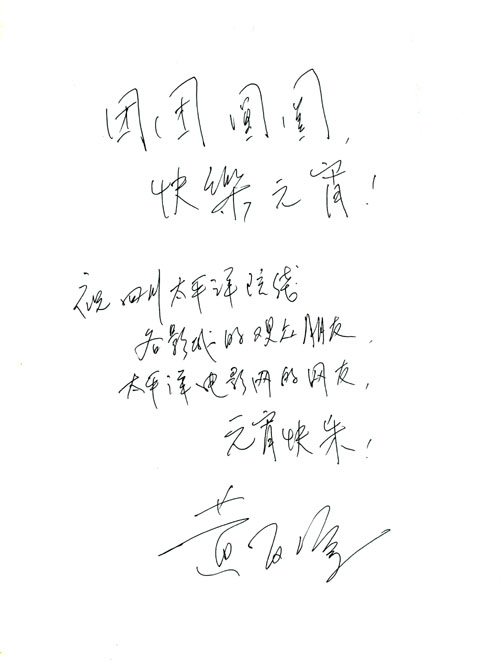 团团圆圆,
快樂元宵!
祝四川太平洋院线
各影城的观众朋友,
太平洋电影网的网友,
元宵快乐!
黄百鸣